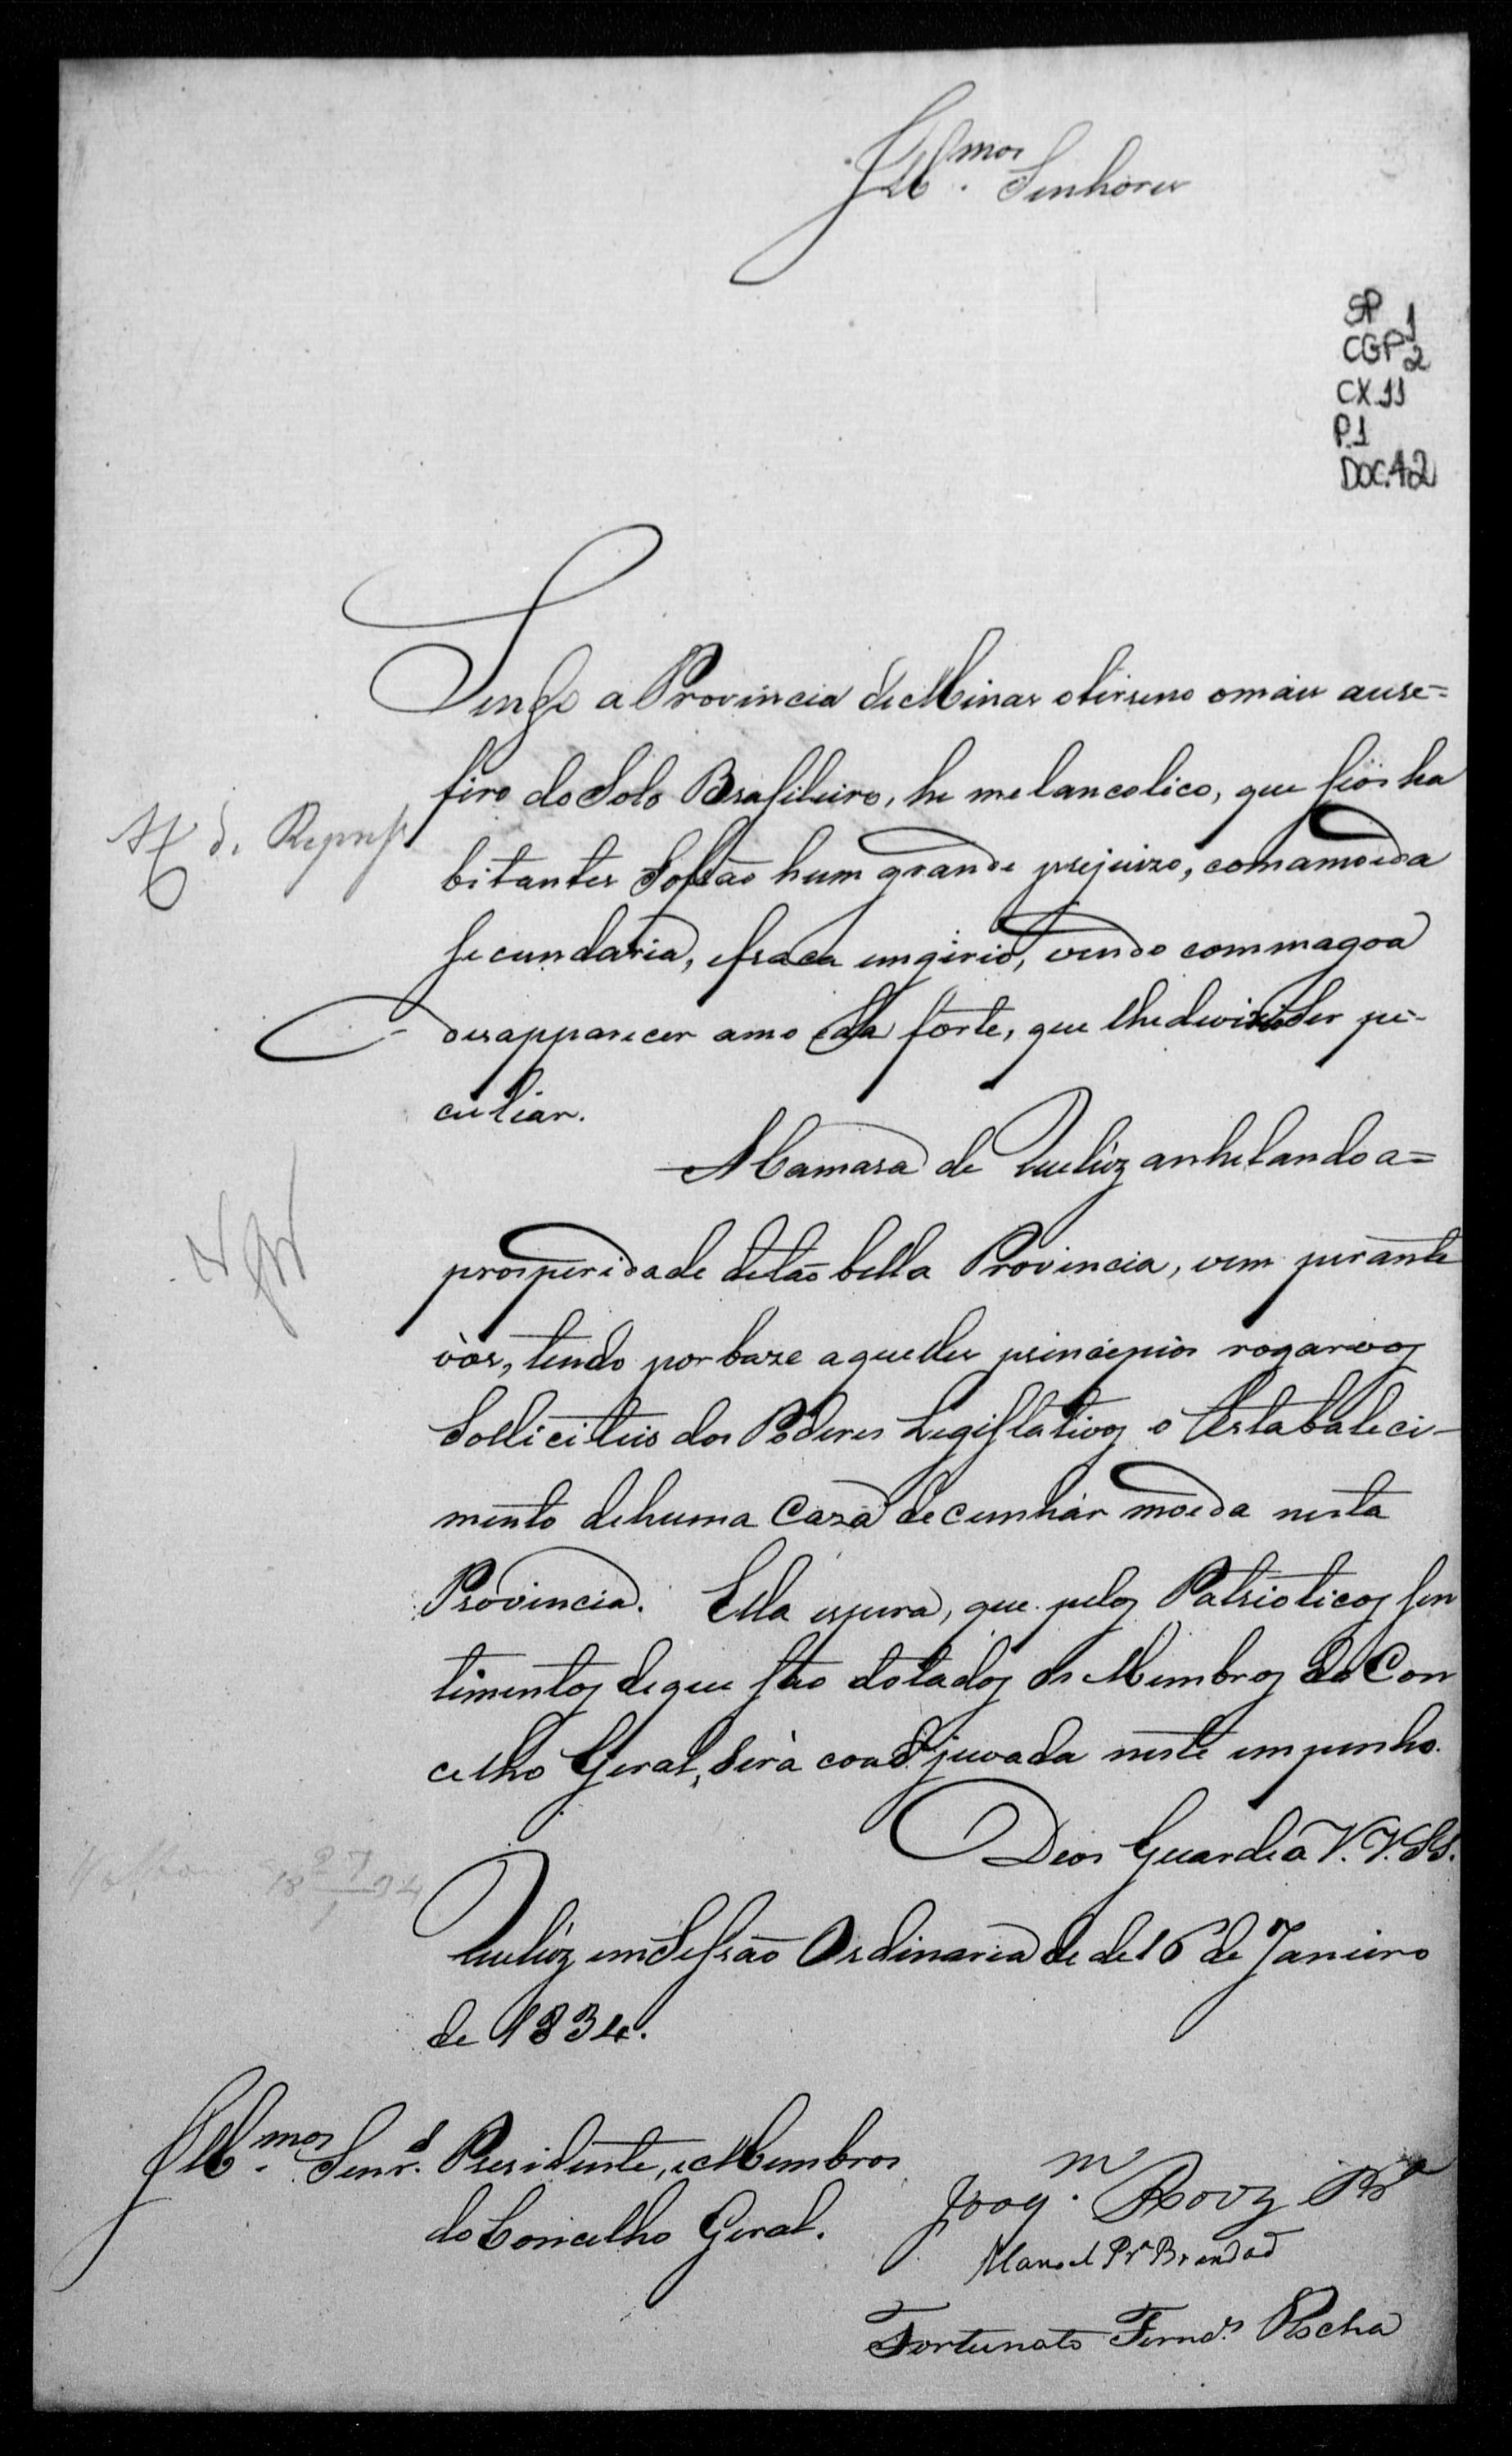 Illmos. Senhores
SP 1
CGP 2
CX.11
P.1
DOC.42
Sendo a Provincia de Minas o terreno o mais aure=
firo do Solo Brasileiro, he melancolico, que seos ha
bitantes Sofrão hum grande prejuizo, com a moeda
secundaria, e fraca em girio, vendo com magoa
desapparecer a moeda forte, que lhe devia Ser pe-
culiar.
A Camara de Queluz anhelando a=
prosperidade de tão bella Provincia, vem perante
vòs, tendo por baze aquelles principios rogarvos
Solliciteis dos Poderes Legislativos o Estabaleci-
mento de huma Caza de cunhar moeda nesta
Provincia. Ella espera, que pelos Patrioticos sen
timentos de que são dotados os Membros do Con
celho Geral, Serà coadjuvada neste empenho.
Deos Guarde a V.V. SS.
Queluz em Sessão Ordinaria de de 16 de Janeiro
de 1834.
Illmos. Senrs. Presidente, e Membros
do Concelho Geral.
A C. d. Repres.
27
18 34
1
Joaqm. Roiz Pra
Manoel Pra Brandaõ
Fortunato Fernds. Rocha